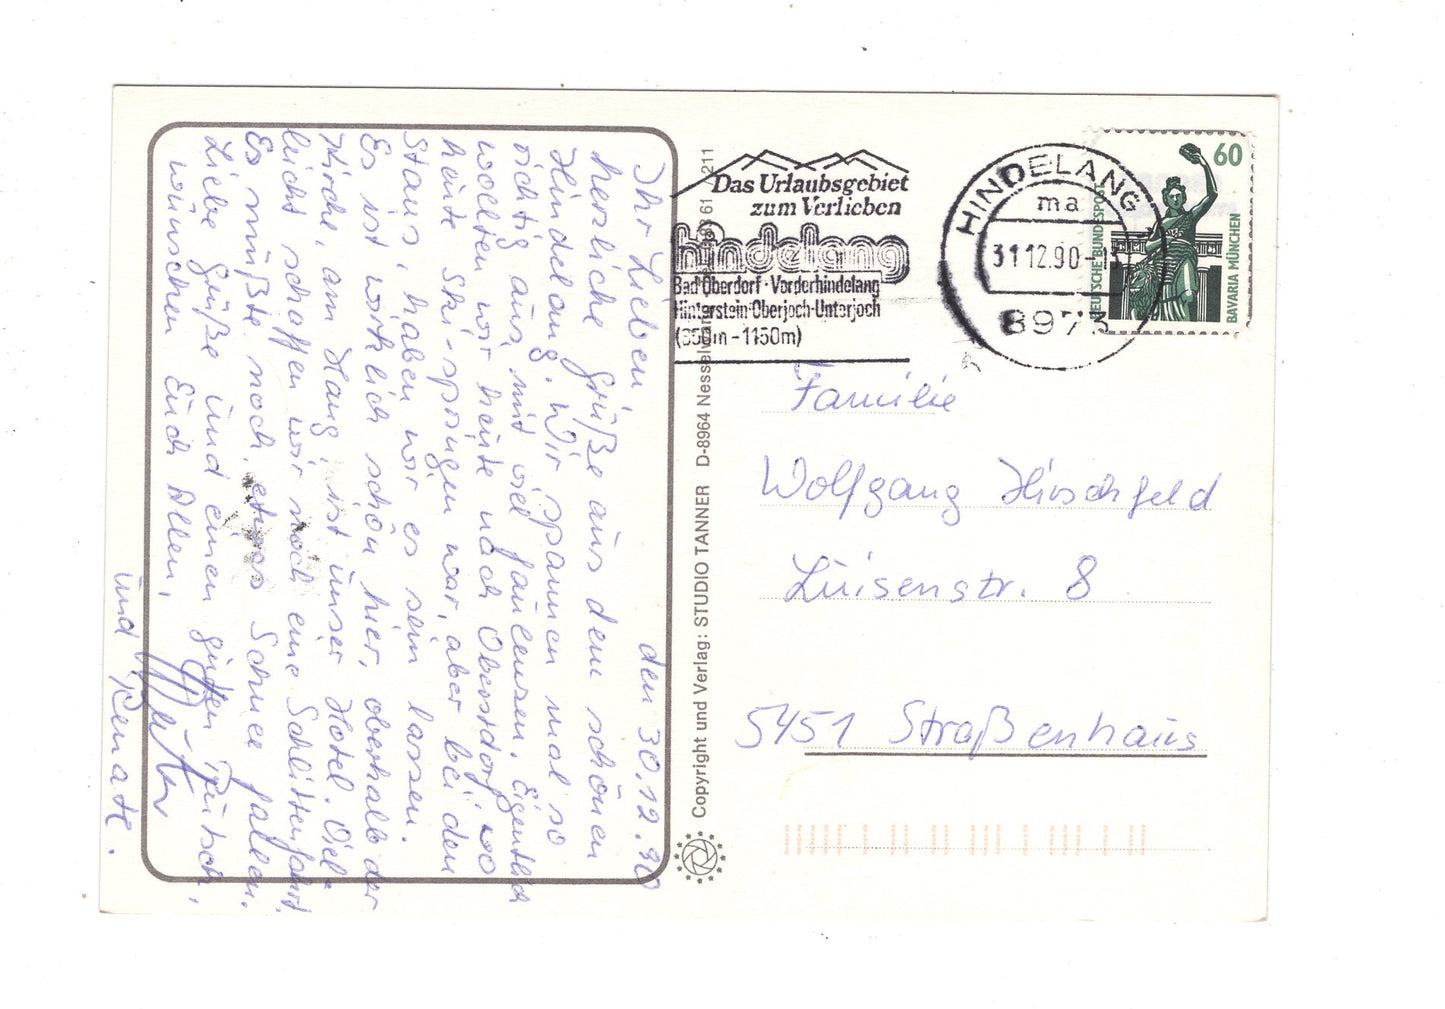 Ihr Lieben, den 30.12.90
herzliche Grüße aus dem schönen
Hindelang. Wir spannen mal so
richtig aus, mit viel faulenzen. Eigentlich
wollten wir heute nach Oberstdorf, wo
heute Ski-springen war, aber bei den
Staus, haben wir es sein lassen.
Es ist wirklich schön hier, oberhalb der
Kirche, am Hang, ist unser Hotel. Viel-
leicht schaffen wir noch eine Schlittenfahrt.
Es müßte noch etwas Schnee fallen.
Liebe Grüße und einen guten Rutsch,
wünschen Euch Allen,
und Renate.
Copyright und Verlag: STUDIO TANNER D-8964 Nesselw 61 211
Das Urlaubsgebiet
zum Verlieben
hindelang
Bad Oberdorf · Vorderhindelang
Hinterstein·Oberjoch·Unterjoch
(850m - 1150m)
HINDELANG
ma
31.12.90
8973
60
DEUTSCHE BUNDESPOST
BAVARIA MÜNCHEN
Familie
Wolfgang Hirschfeld
Luisenstr. 8
5451 Straßenhaus